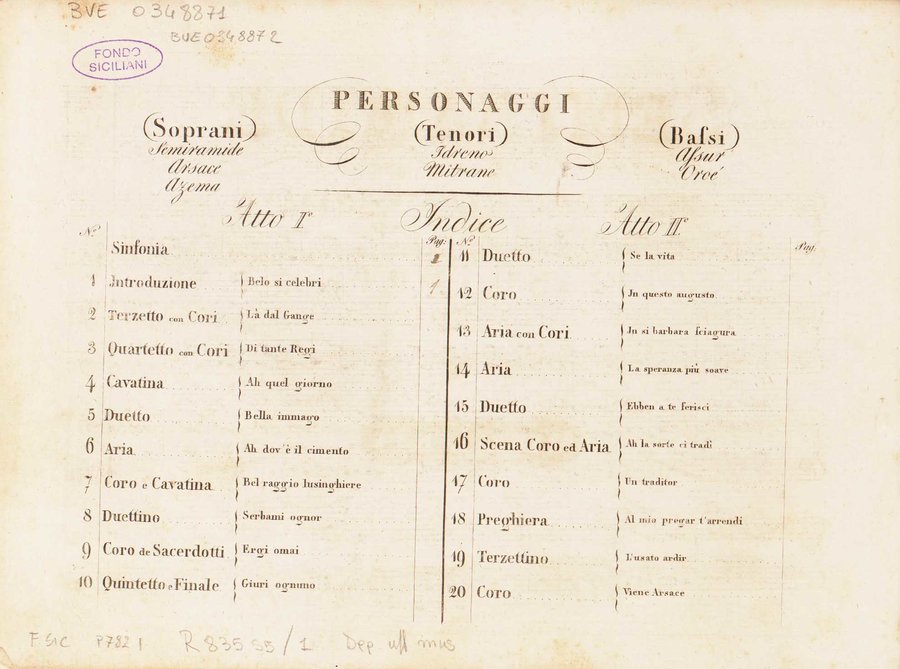 BVE 0348871
BVE 0348872
FONDO
SICILIANI
PERSONAGGI
(Soprani)
Semiramide
Arsace
Azema
(Tenori)
Idreno
Mitrane
(Bafsi)
Afsur
Oroé
Atto I.º
Indice
Atto II.º
N.º Pag:
Sinfonia
1 Introduzione Belo si celebri 1
2 Terzetto con Cori Là dal Gange
3 Quartetto con Cori Di tante Regi
4 Cavatina Ah quel giorno
5 Duetto Bella immago
6 Aria Ah dov'è il cimento
7 Coro e Cavatina Bel raggio lusinghiere
8 Duettino Serbami ognor
9 Coro de Sacerdotti Ergi omai
10 Quintetto e Finale Giuri ognuno
N.º Pag:
11 Duetto Se la vita
12 Coro Jn questo augusto
13 Aria con Cori Jn si barbara sciagura
14 Aria La speranza più soave
15 Duetto Ebben a te ferisci
16 Scena Coro ed Aria Ah la sorte ci tradì
17 Coro Un traditor
18 Preghiera Al mio pregar t'arrendi
19 Terzettino L'usato ardir
20 Coro Viene Arsace
F SIC P782 1 R 835 55/1 Dep uff mus